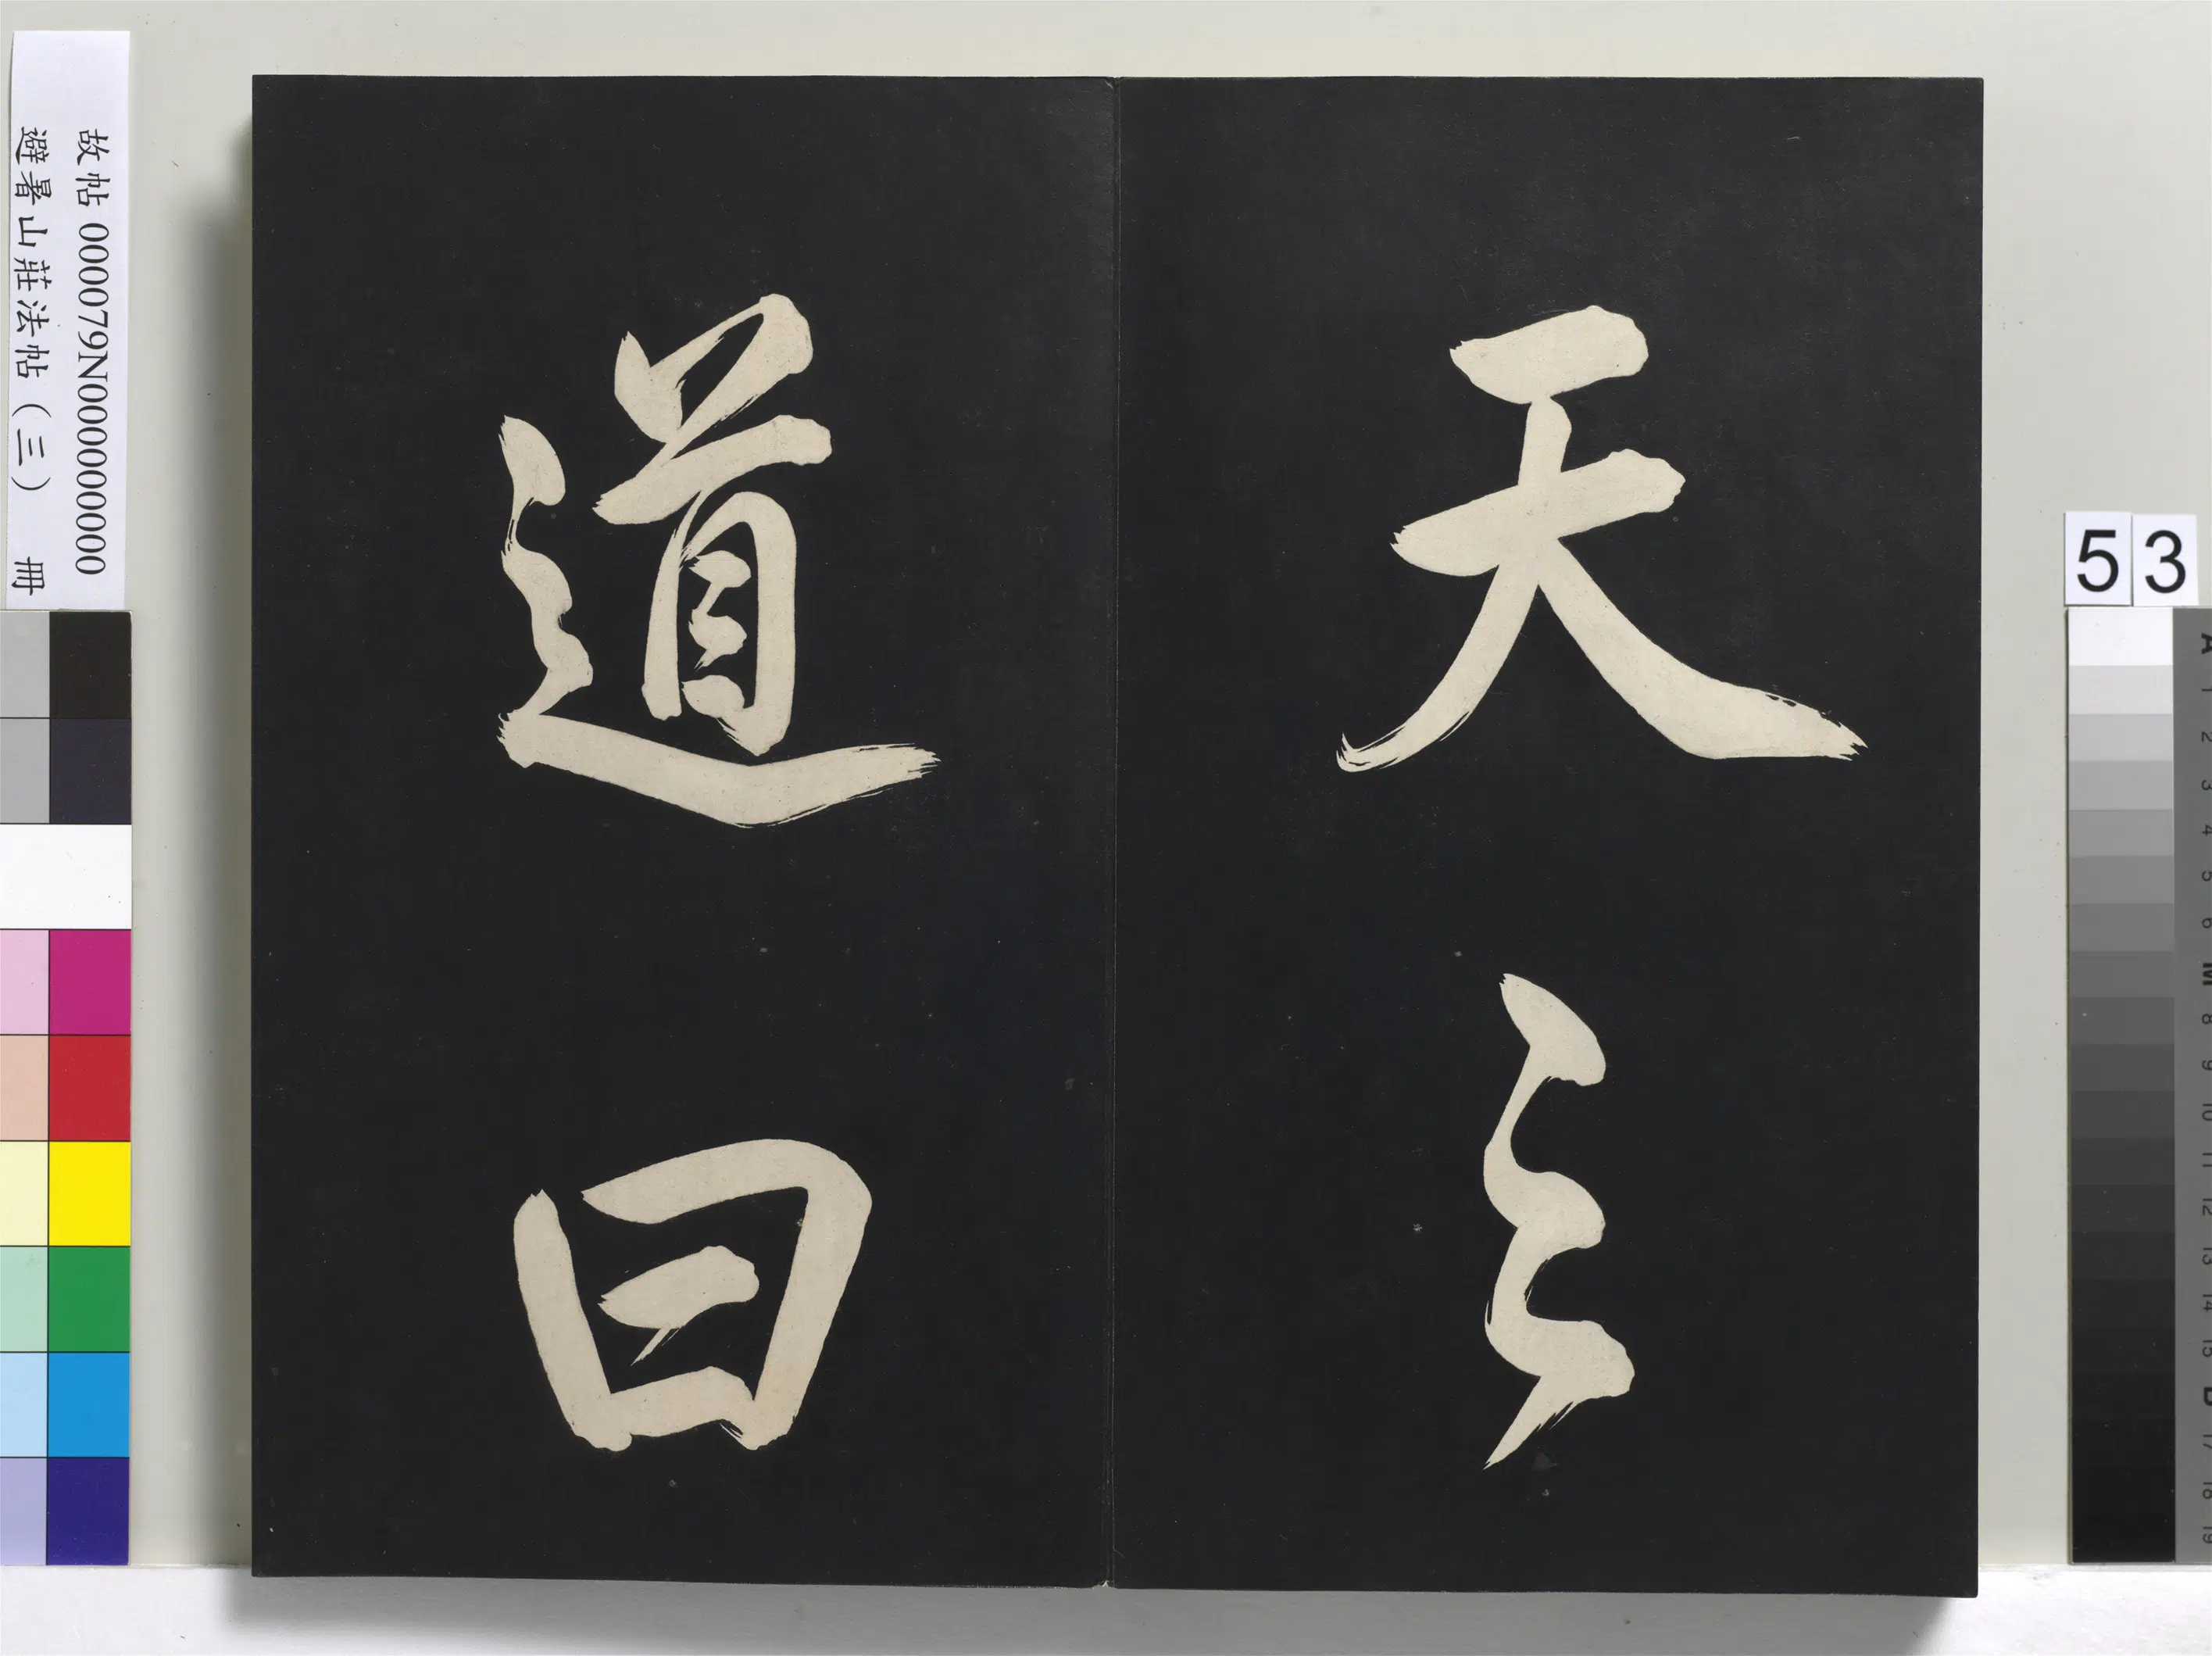 天之
道曰
故帖 000079N000000000
避暑山莊法帖(三) 冊
53
A
1
2
3
4
5
6
M
8
9
10
11
12
13
14
15
B
17
18
19